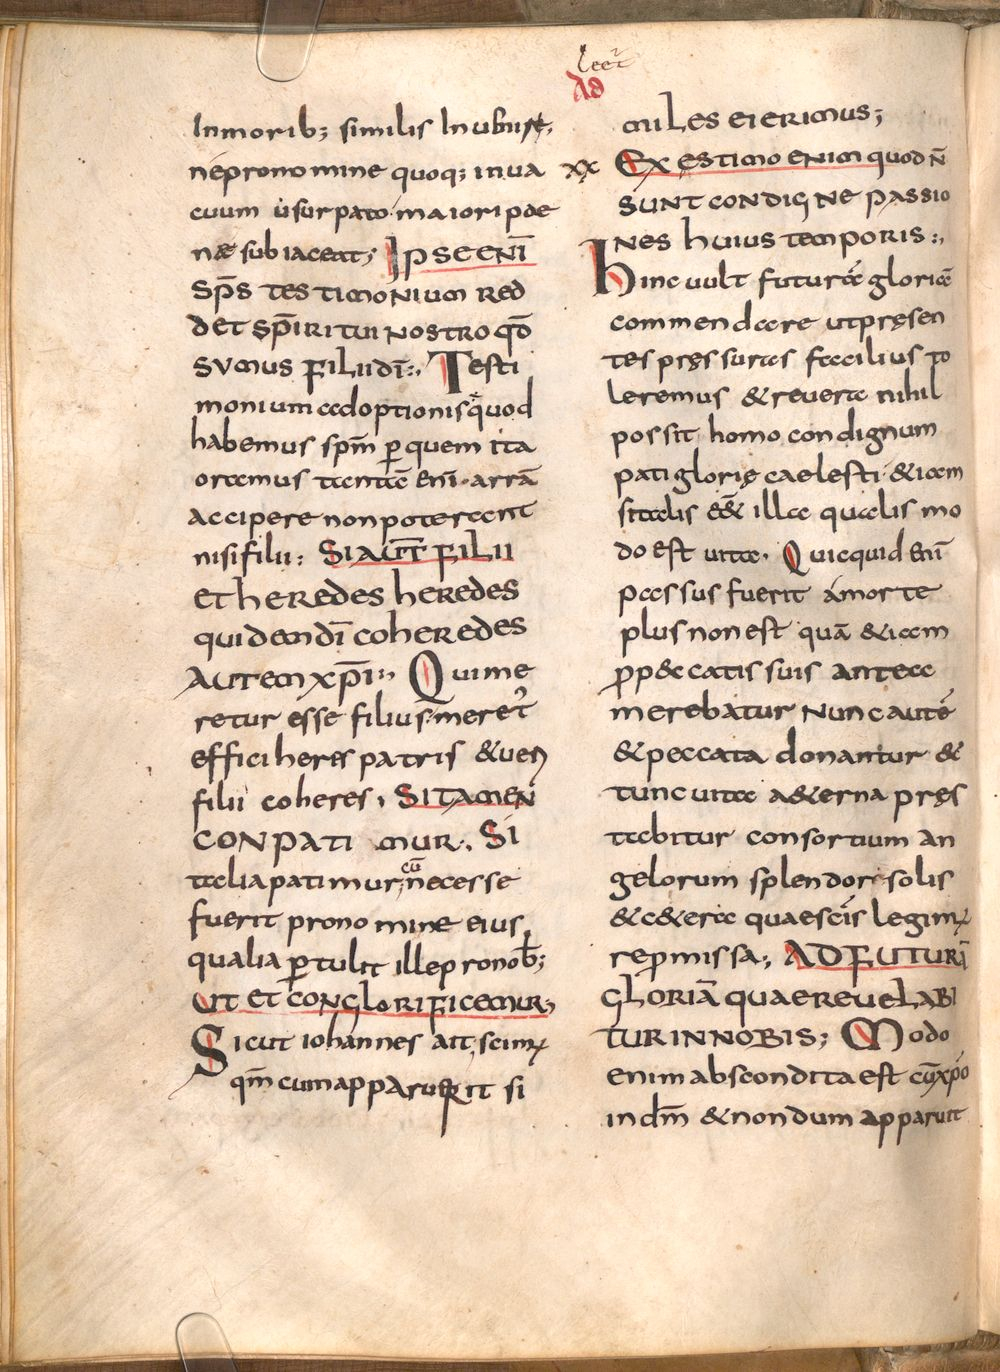 lect̄
Ad
Inmorib; similis Inueniat,
nepronomine quoq; inua
cuum usurpato maiori poe
næ subiaceat; Ipse enī
sp̄s testimonium red
det sp̄iritui nostro qd̄
sumus filii dī:, Testi
monium adoptionis quod
habemus spm̄ ꝑ quem ita
oramus tantā enī arrā
accipere non poterant
nisi filii: Si aut̄ filii
et heredes heredes
quidem dī coheredes
autem xp̄i:, Qui me
retur esse filius meret᷑
effici heres patris & ueri
filii coheres, Si tamen
conpatimur. Si
talia patimur, cū necesse
fuerit pro nomine eius,
qualia ꝑtulit ille pro nob̄;
ut et conglorificemur;
Sicut iohannes ait, scimꝰ
qm̄ cum apparuerit si
miles ei erimus;
xx Exęstimo enim quod n̄
sunt condignę passio
nes huius temporis:,
hinc uult futuræ gloriæ
commendare ut pręsen
tes pręssuras facilius to
leremus & reuera nihil
possit homo condignum
pati glorię caelesti & iam
si talis eēt illa qualis mo
do est uita. Quicquid enī
passus fuerit á morte
plus non est quā & iam
ꝓ peccatis suis antea
merebatur Nunc autē
& peccata donantur &
tunc uita aeterna pręs
tabitur consortium an
gelorum splendor solis
& cetera quae sc̄is legimꝰ
repmissa; Ad futurā
gloriā quae reuelabi
tur in nobis; Modo
enim abscondita est cū xp̄o
in dm̄ & nondum apparuit